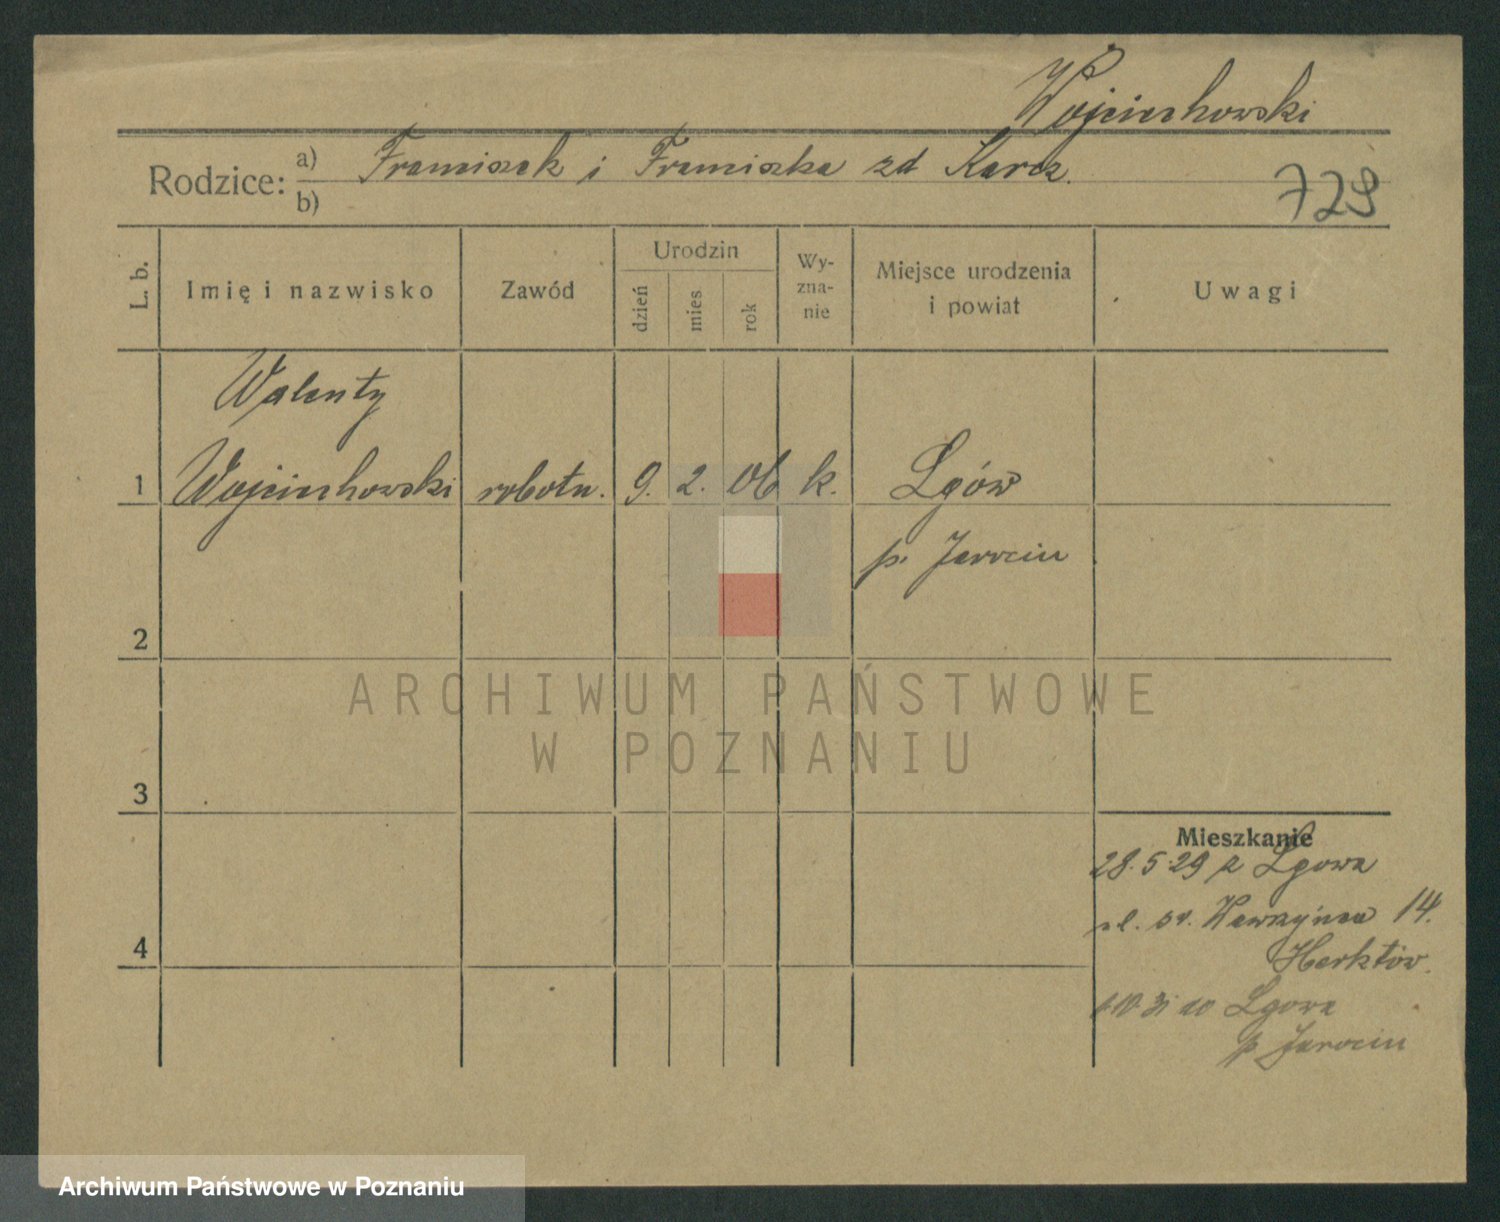 Wojciechowski
Rodzice: a) Franciszek i Franciszka zd Karcz.
b)
729
L. b.
Imię i nazwisko
Zawód
Urodzin
dzień
mies
rok
Wy-
zna-
nie
Miejsce urodzenia
i powiat
Uwagi
Walenty
1 Wojciechowski robotn. 9. 2. 06 k. Lgów
p. Jarocin
2
ARCHIWUM PAŃSTWOWE
W POZNANIU
3
Mieszkanie
28.5.29 z Lgowa
ul. św. Wawrzyńca 14.
31 do Lgowa
4
p Jarocin
Archiwum Państwowe w Poznaniu